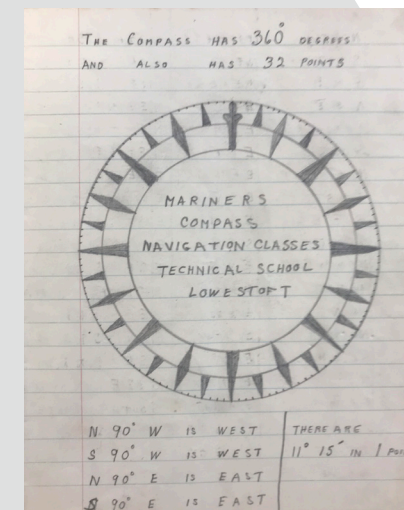 THE COMPASS HAS 360° DEGREES
AND ALSO HAS 32 POINTS
MARINERS
COMPASS
NAVIGATION CLASSES
TECHNICAL SCHOOL
LOWESTOFT
N 90° W IS WEST
S 90° W IS WEST
N 90° E IS EAST
S 90° E IS EAST
THERE ARE
11° 15' IN 1